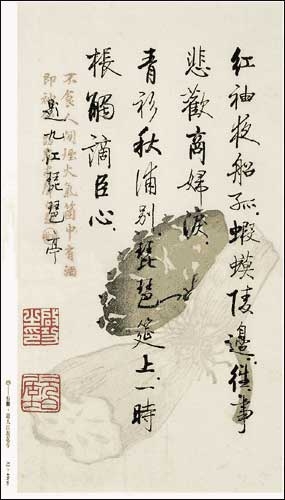 紅袖夜船孤蝦蟆陵邊往事
悲歡商婦淚
青衫秋浦別琵琶筵上一時
棖觸謫臣心
不食人間煙火氣箇中有酒
題九江琵琶亭